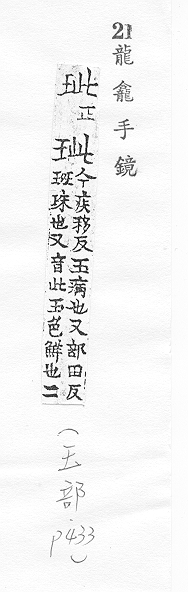 21 龍龕手鏡
玼正玼今疾移反玉病也又部田反
班珠也又音此玉色鮮也二
(玉部·p433)